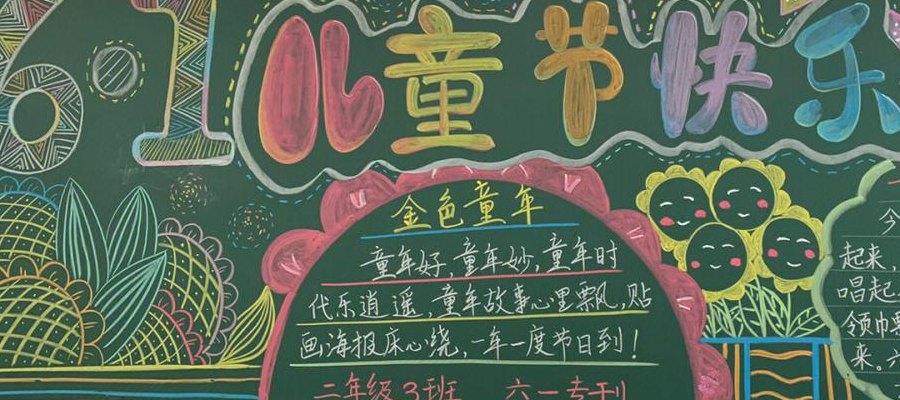 61儿童节快乐
金色童年
童年好，童年妙，童年时
代乐逍遥，童年故事心里飘，贴
画海报床心绕，一年一度节日到！
二年级3班 六一专刊
今
起来，
唱起
领巾
来。六